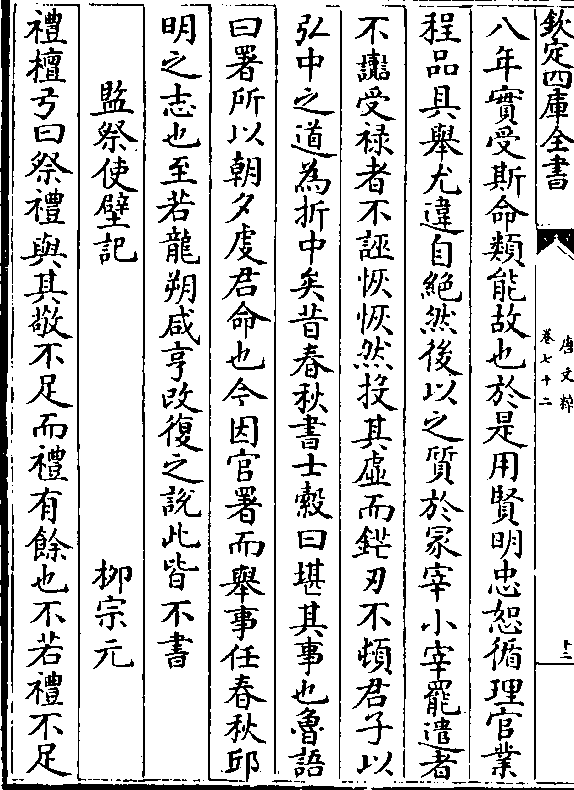 欽定四庫全書
唐文粹
卷七十二
十二
八年實受斯命類能故也於是用賢明忠恕循理官業
程品具舉尤違自絕然後以之質於冢宰小宰罷遣者
不讟受禄者不誣恢恢然投其虛而鋩刃不頓君子以
弘中之道為折中矣昔春秋書士縠曰堪其事也魯語
曰署所以朝夕虔君命也今因官署而舉事任春秋邱
明之志也至若龍朔咸亨改復之說此皆不書
監祭使壁記　柳宗元
禮檀弓曰祭禮與其敬不足而禮有餘也不若禮不足